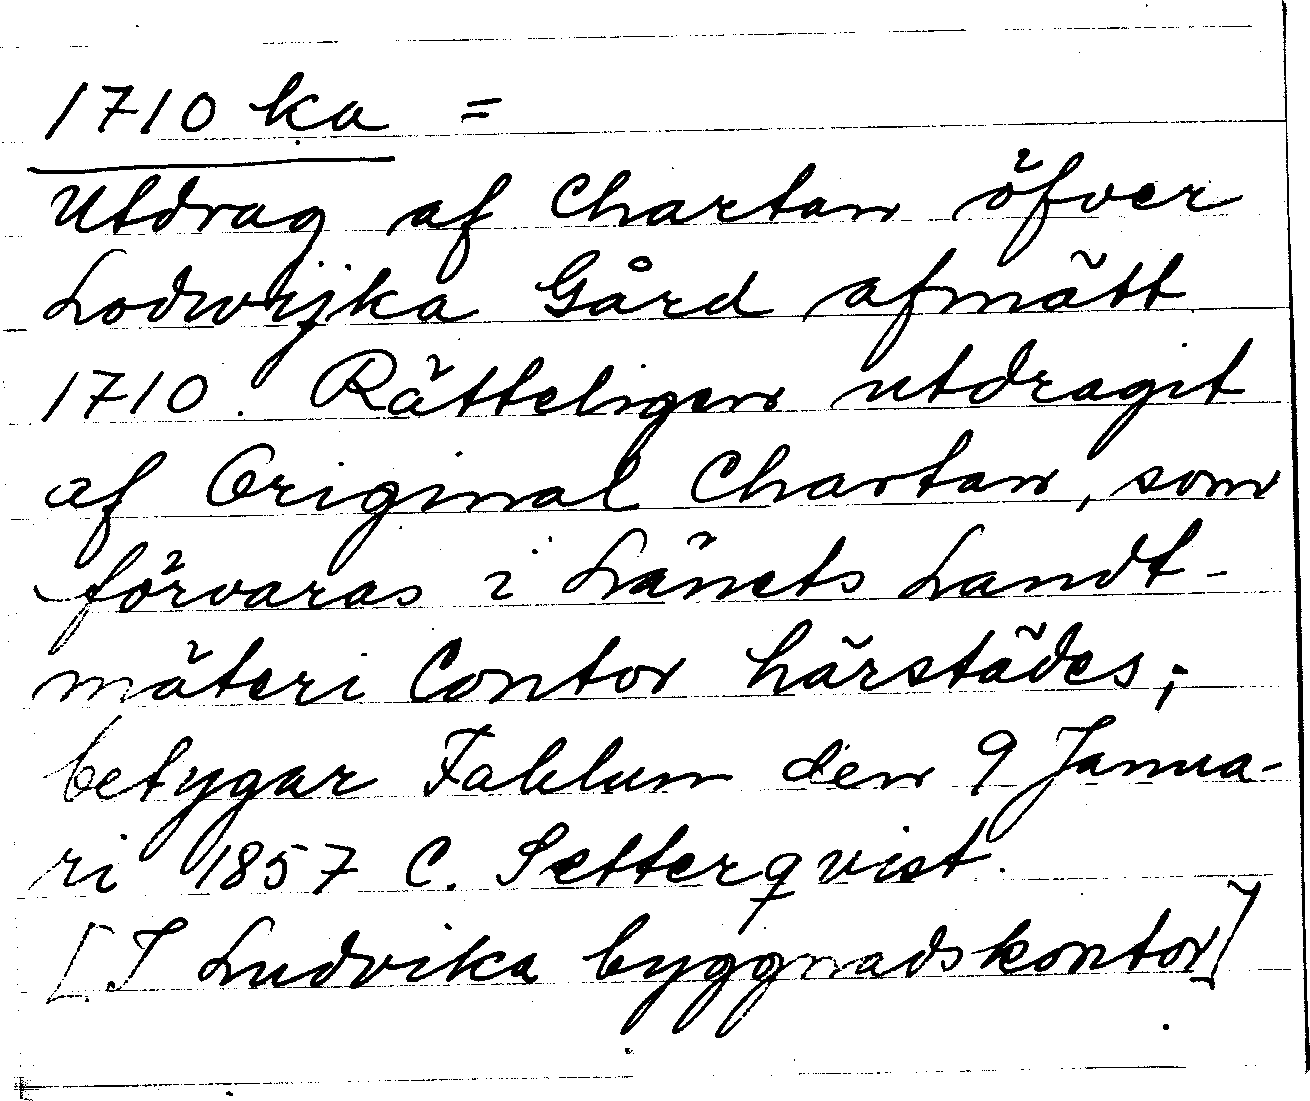 1710 ka =
Utdrag af Chartan öfver
Lodwijka Gård afmätt
1710. Rätteligen utdragit
af Original Chartan, som
förvaras i Länets Landt-
mäteri Contor härstädes;
betygar Fahlun den 9 Janua-
ri 1857 C. Setterqvist.
[I Ludvika byggnadskontor]